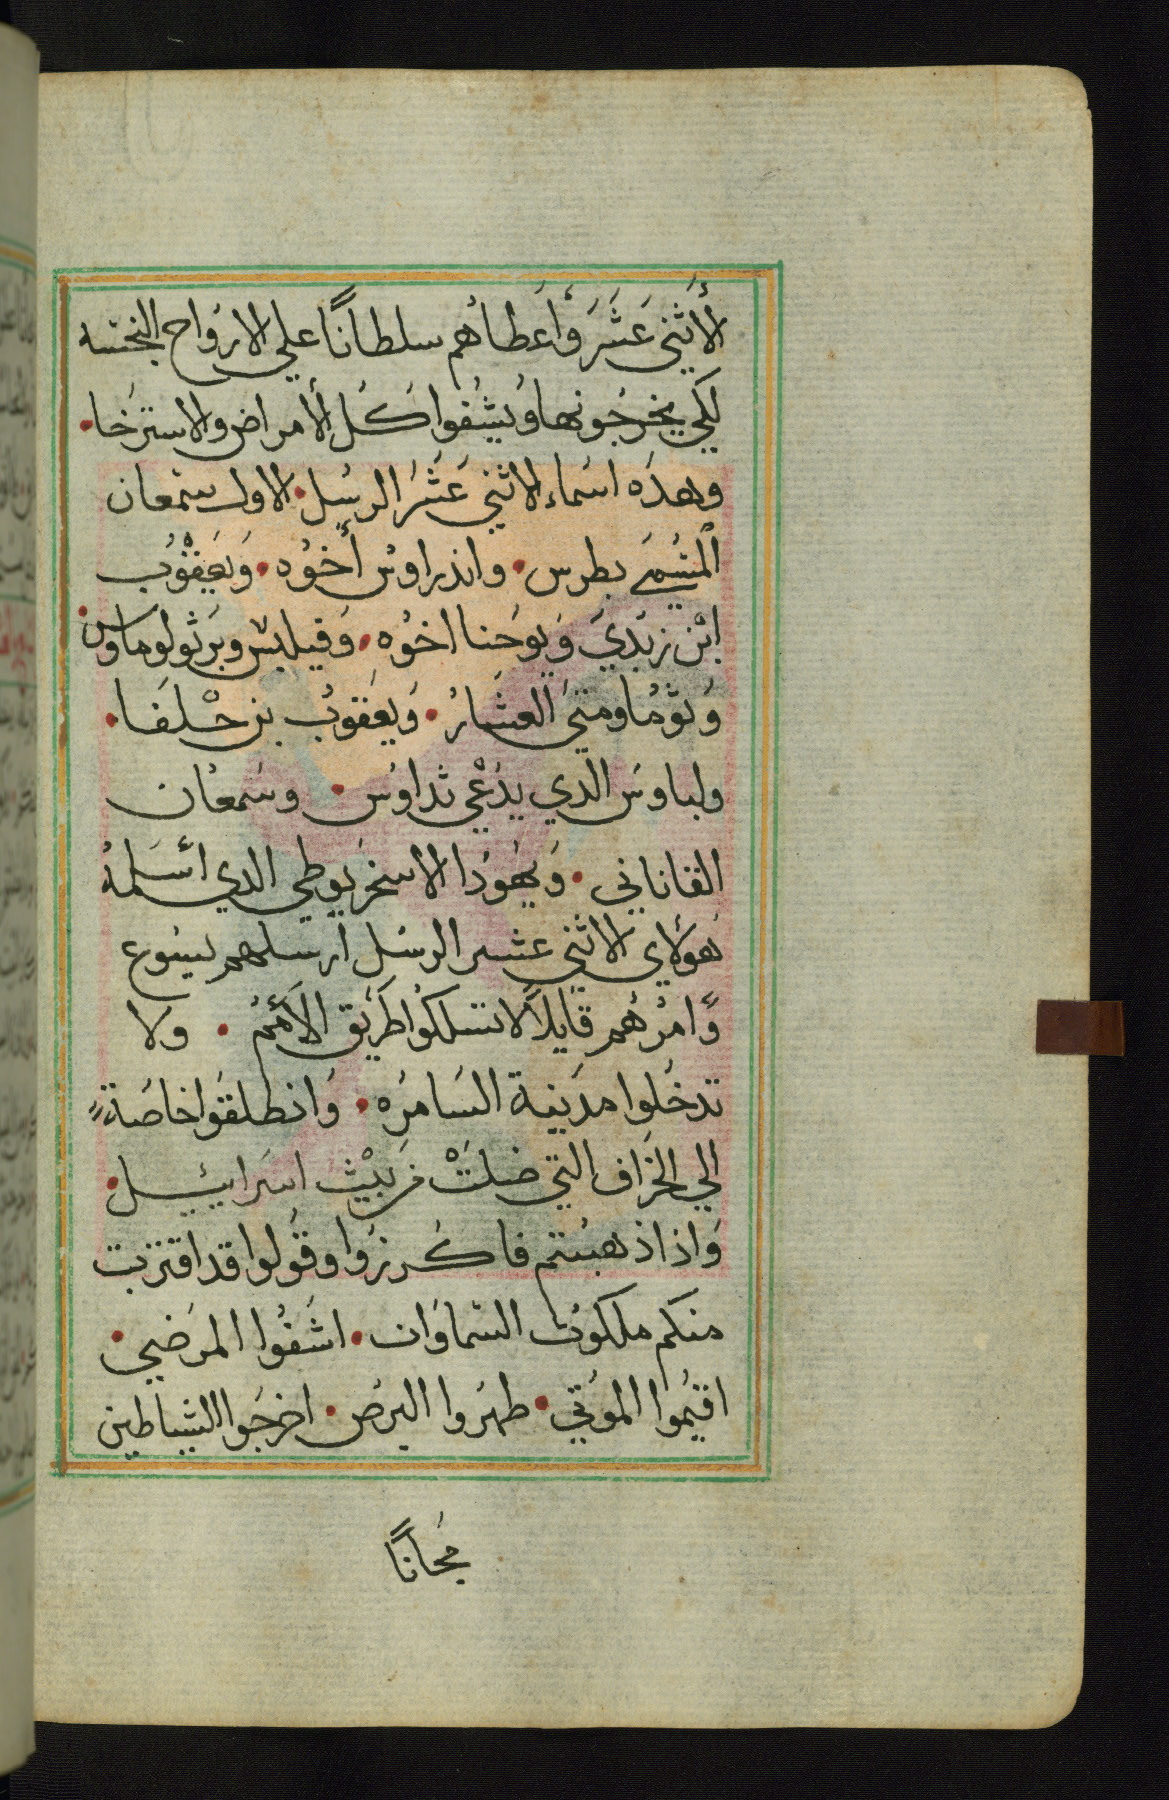 الأَثني عَشَرَ وأَعَطاهُم سلطانًا علي الارَواح النجسه
لكَي يخرجُونها وُيشُفوا كَل الأمراض والاسترَخا.
وهذَه اسَماء الاثني عَشَرَ الرسُل. الاول سمعان
المسُمَي بطرس. واندراوسُ أخوُه. وَيعقوُب
ابْن زبَديَ وَيوحَنا اخوُه. وَفيلبس وبَرثولوماوس.
وَتوُما ومتيَ العشَارُ. وَيعَقوبُ بن حْلفَا.
ولباوسَ الدي يدُعْي تداوسُ. وسَمعُان
القاناني. وَيهُودُا الاسخرَيوطي الدي اسَلمهُ
هوَلأي الاثني عشر الرسُل ارسلهم يسُوع
وَامرُهُم قايلاً لا تسلكوُا طرَيق الأَممُ. ولا
تدخُلوا مدَينة السَامرَه. وَانطلقوَا خاصَةً
الي الخرَاف التي ضلتَْ من بيْتِ اسرَاييل.
وَاذا ذهبَتم فاكرزوُا وقوُلوا قد اقتربت
منكم ملكوُت السَماوَات. اشَفوُا المرَضي.
اقيُموا الموُتي. طهرَوا البرَص. اخرجَوا الشياطين
مجَانًا